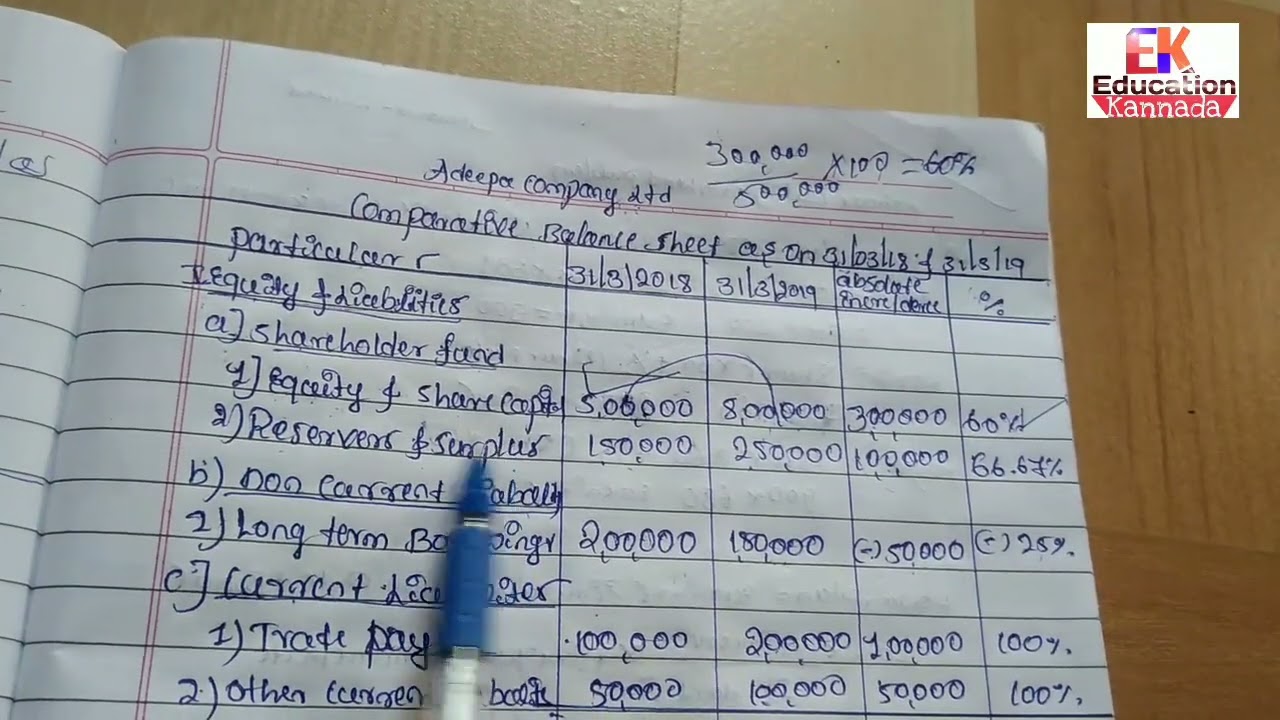 EK
Education
Kannada
Adeepa Company Ltd
300,000 / 500,000 ×100 = 60%
Comparative Balance Sheet as on 31/03/18 & 31/3/19
Particulars 31/3/2018 31/3/2019 absolute incre/decre %
I Equity & Liabilities
a] Shareholder fund
1] Equity & Share Capital 5,00,000 8,00,000 300,000 60%
2) Reservers & Surplus 150,000 250,000 100,000 66.67%
b) Non Current
2) Long term 200,000 150,000 (-) 50,000 (-) 25%.
C] Current
1) Trade pay 100,000 200,000 1,00,000 100%.
2.) Other Curren 50,000 100,000 50,000 100%.